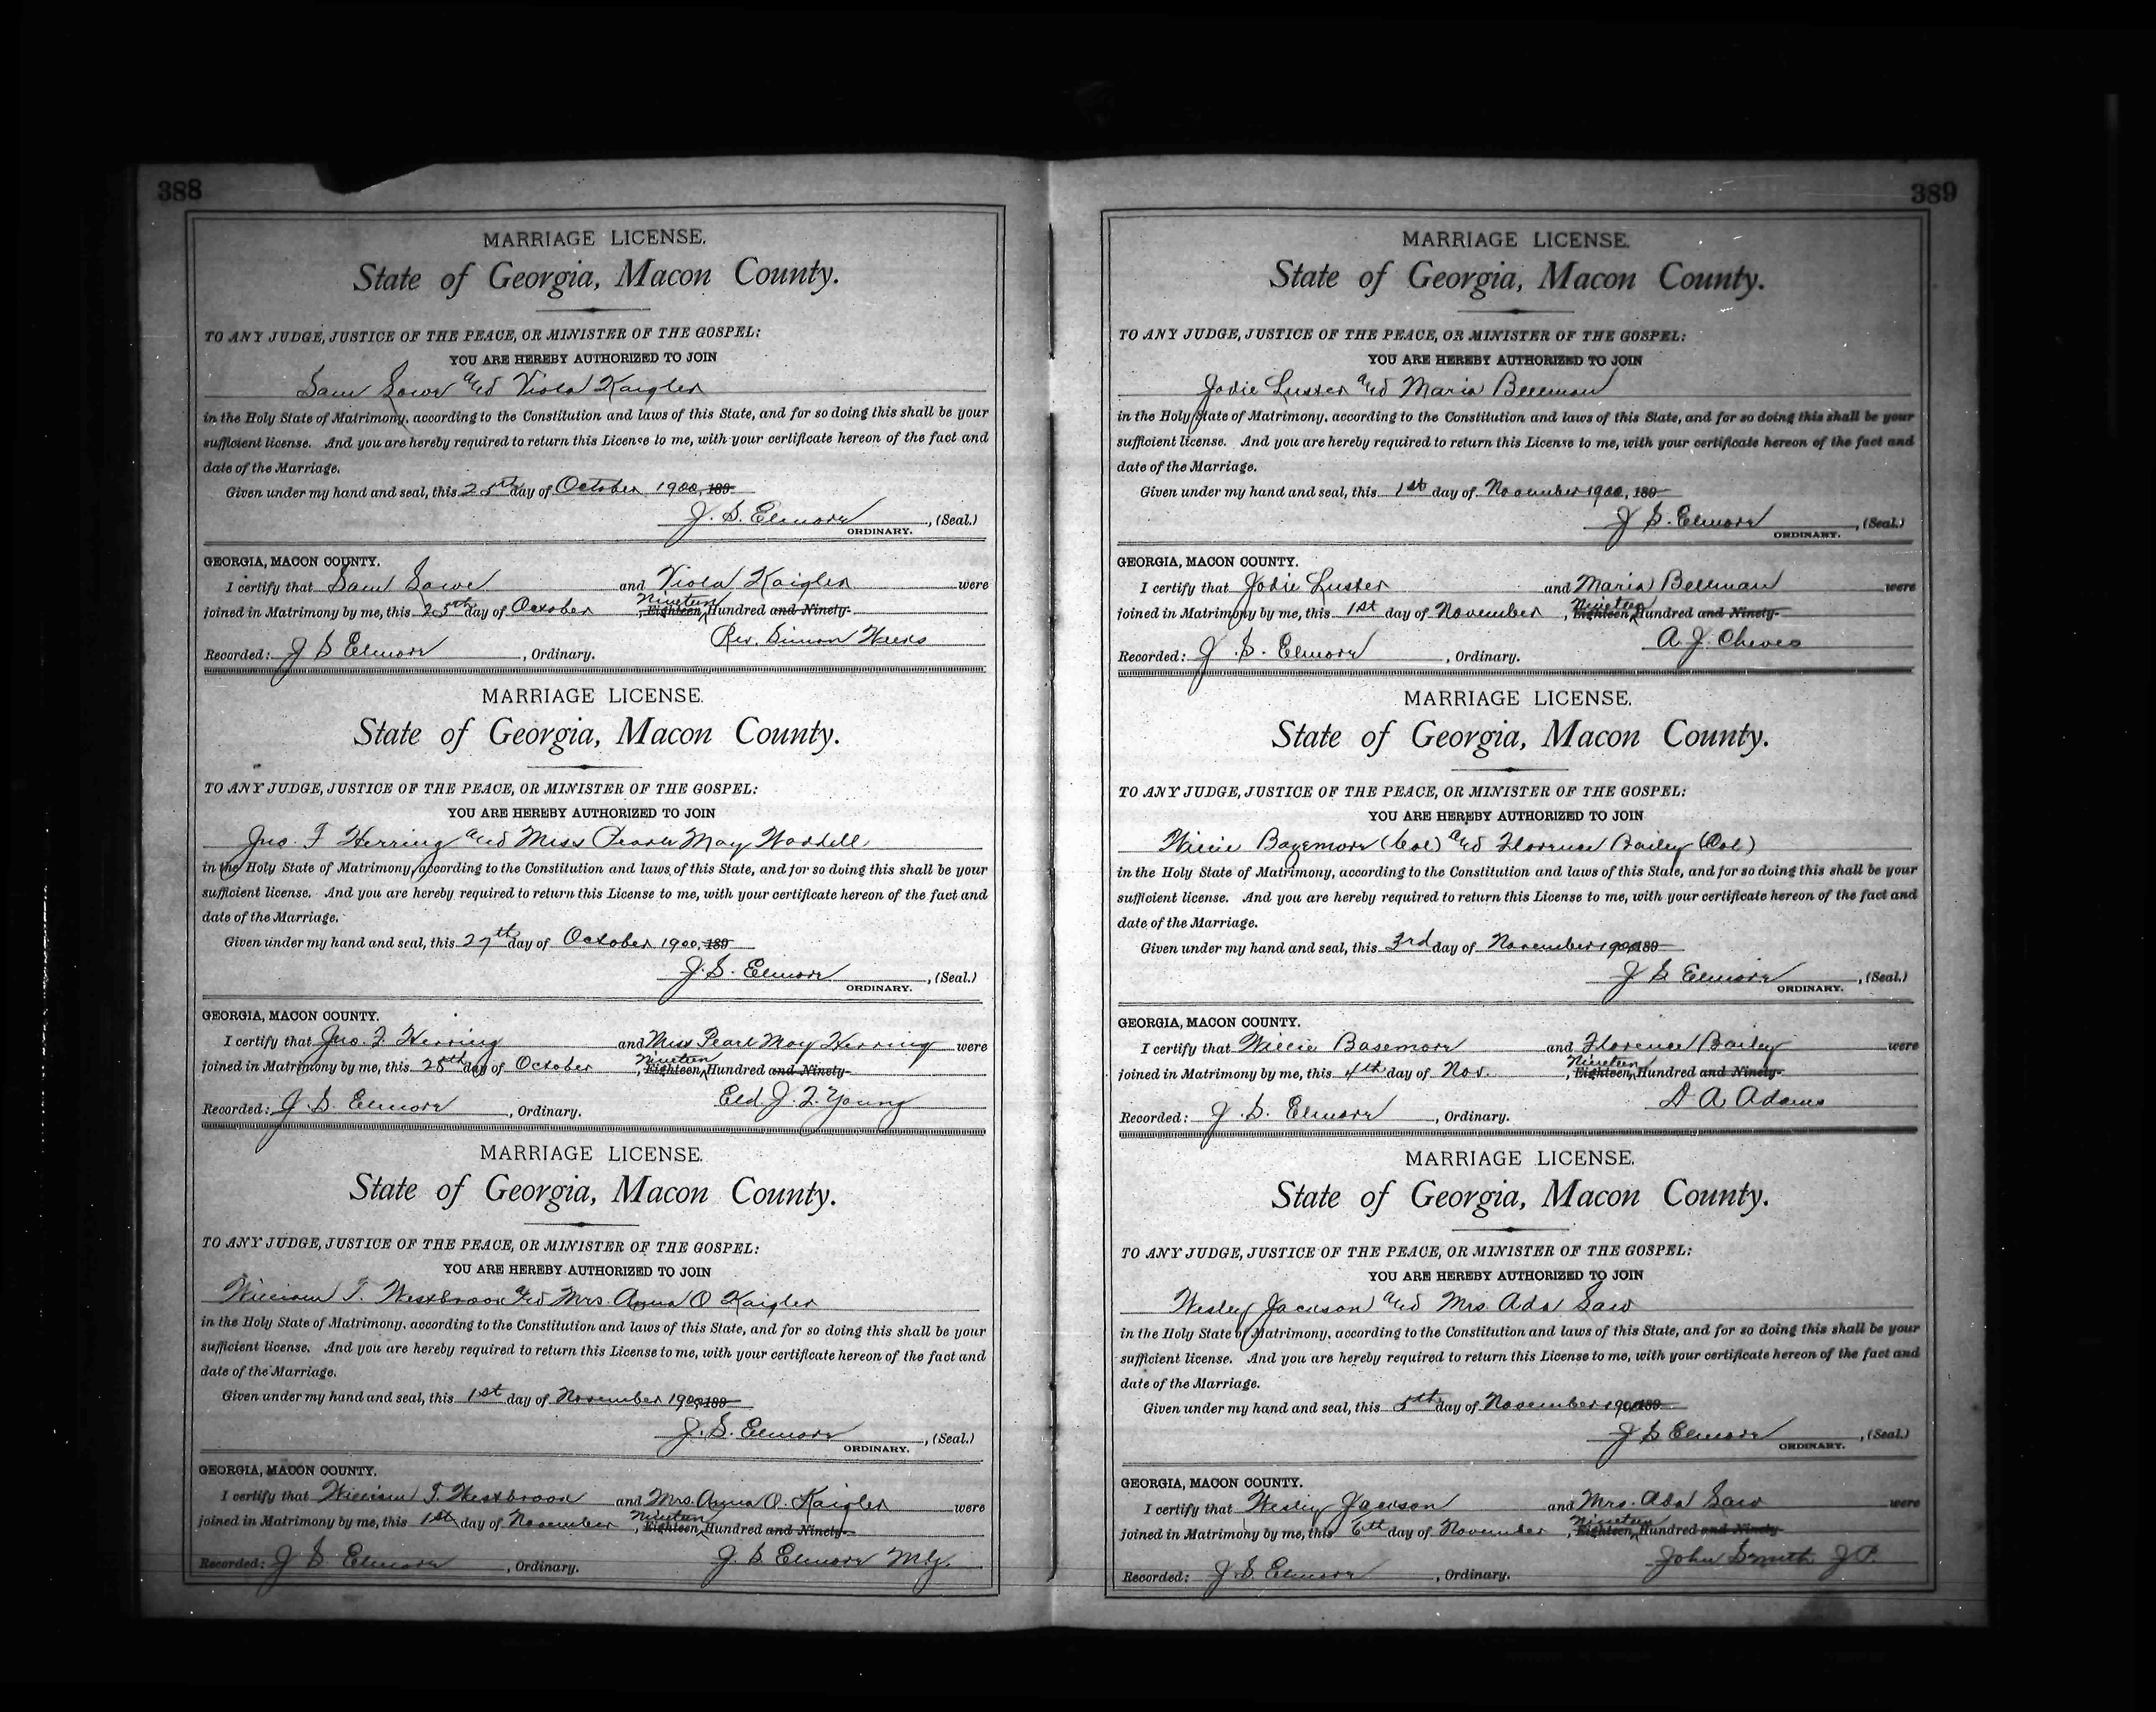 388
MARRIAGE LICENSE.
State of Georgia, Macon County.
TO ANY JUDGE, JUSTICE OF THE PEACE, OR MINISTER OF THE GOSPEL:
YOU ARE HEREBY AUTHORIZED TO JOIN
Sam Lowe and Viola Kaigler
in the Holy State of Matrimony, according to the Constitution and laws of this State, and for so doing this shall be your
sufficient license. And you are hereby required to return this License to me, with your certificate hereon of the fact and
date of the Marriage.
Given under my hand and seal, this 25th day of October 1900, 189
J. S. Elmore, (Seal.)
ORDINARY.
GEORGIA, MACON COUNTY.
I certify that Sam Lowe and Viola Kaigler were
joined in Matrimony by me, this 25th day of October, Eighteen Nineteen Hundred and Ninety-
Rev. Simon Weeks
Recorded: J S Elmore, Ordinary.
MARRIAGE LICENSE.
State of Georgia, Macon County.
TO ANY JUDGE, JUSTICE OF THE PEACE, OR MINISTER OF THE GOSPEL:
YOU ARE HEREBY AUTHORIZED TO JOIN
Jno. F Herring and Miss Pearle May Waddell
in the Holy State of Matrimony, according to the Constitution and laws of this State, and for so doing this shall be your
sufficient license. And you are hereby required to return this License to me, with your certificate hereon of the fact and
date of the Marriage.
Given under my hand and seal, this 27th day of October 1900, 189
J. S. Elmore, (Seal.)
ORDINARY.
GEORGIA, MACON COUNTY.
I certify that Jno. F. Herring and Miss Pearl May Herring were
joined in Matrimony by me, this 28th day of October, Eighteen Nineteen Hundred and Ninety-
Eld J. F. Young
Recorded: J. S. Elmore, Ordinary.
MARRIAGE LICENSE.
State of Georgia, Macon County.
TO ANY JUDGE, JUSTICE OF THE PEACE, OR MINISTER OF THE GOSPEL:
YOU ARE HEREBY AUTHORIZED TO JOIN
William T. Westbrook and Mrs. Anna O Kaigler
in the Holy State of Matrimony, according to the Constitution and laws of this State, and for so doing this shall be your
sufficient license. And you are hereby required to return this License to me, with your certificate hereon of the fact and
date of the Marriage.
Given under my hand and seal, this 1st day of November 1900, 189
J. S. Elmore, (Seal.)
ORDINARY.
GEORGIA, MACON COUNTY.
I certify that William T. Westbrook and Mrs. Anna O. Kaigler were
joined in Matrimony by me, this 1st day of November, Eighteen Nineteen Hundred and Ninety-
J. S. Elmore
Recorded: J S Elmore, Ordinary.
389
MARRIAGE LICENSE.
State of Georgia, Macon County.
TO ANY JUDGE, JUSTICE OF THE PEACE, OR MINISTER OF THE GOSPEL:
YOU ARE HEREBY AUTHORIZED TO JOIN
Jodie Luster and Maria Bellman
in the Holy State of Matrimony, according to the Constitution and laws of this State, and for so doing this shall be your
sufficient license. And you are hereby required to return this License to me, with your certificate hereon of the fact and
date of the Marriage.
Given under my hand and seal, this 1st day of November 1900, 189
J S. Elmore, (Seal.)
ORDINARY.
GEORGIA, MACON COUNTY.
I certify that Jodie Luster and Maria Bellman were
joined in Matrimony by me, this 1st day of November, Eighteen Nineteen Hundred and Ninety-
A. J. Cheves
Recorded: J. S. Elmore, Ordinary.
MARRIAGE LICENSE.
State of Georgia, Macon County.
TO ANY JUDGE, JUSTICE OF THE PEACE, OR MINISTER OF THE GOSPEL:
YOU ARE HEREBY AUTHORIZED TO JOIN
Willie Bazemore (Col) and Florence Bailey (Col)
in the Holy State of Matrimony, according to the Constitution and laws of this State, and for so doing this shall be your
sufficient license. And you are hereby required to return this License to me, with your certificate hereon of the fact and
date of the Marriage.
Given under my hand and seal, this 3rd day of November 1900, 189
J S Elmore, (Seal.)
ORDINARY.
GEORGIA, MACON COUNTY.
I certify that Willie Basemore and Florence Bailey were
joined in Matrimony by me, this 4th day of Nov., Eighteen Nineteen Hundred and Ninety-
D A Adams
Recorded: J. S. Elmore, Ordinary.
MARRIAGE LICENSE.
State of Georgia, Macon County.
TO ANY JUDGE, JUSTICE OF THE PEACE, OR MINISTER OF THE GOSPEL:
YOU ARE HEREBY AUTHORIZED TO JOIN
Wesley Jackson and Mrs. Ada Saw
in the Holy State of Matrimony, according to the Constitution and laws of this State, and for so doing this shall be your
sufficient license. And you are hereby required to return this License to me, with your certificate hereon of the fact and
date of the Marriage.
Given under my hand and seal, this 5th day of November 1900, 189
J S Elmore, (Seal.)
ORDINARY.
GEORGIA, MACON COUNTY.
I certify that Wesley Jackson and Mrs. Ada Saw were
joined in Matrimony by me, this 6th day of November, Eighteen Nineteen Hundred and Ninety
John Smith J.P.
Recorded: J. S Elmore, Ordinary.